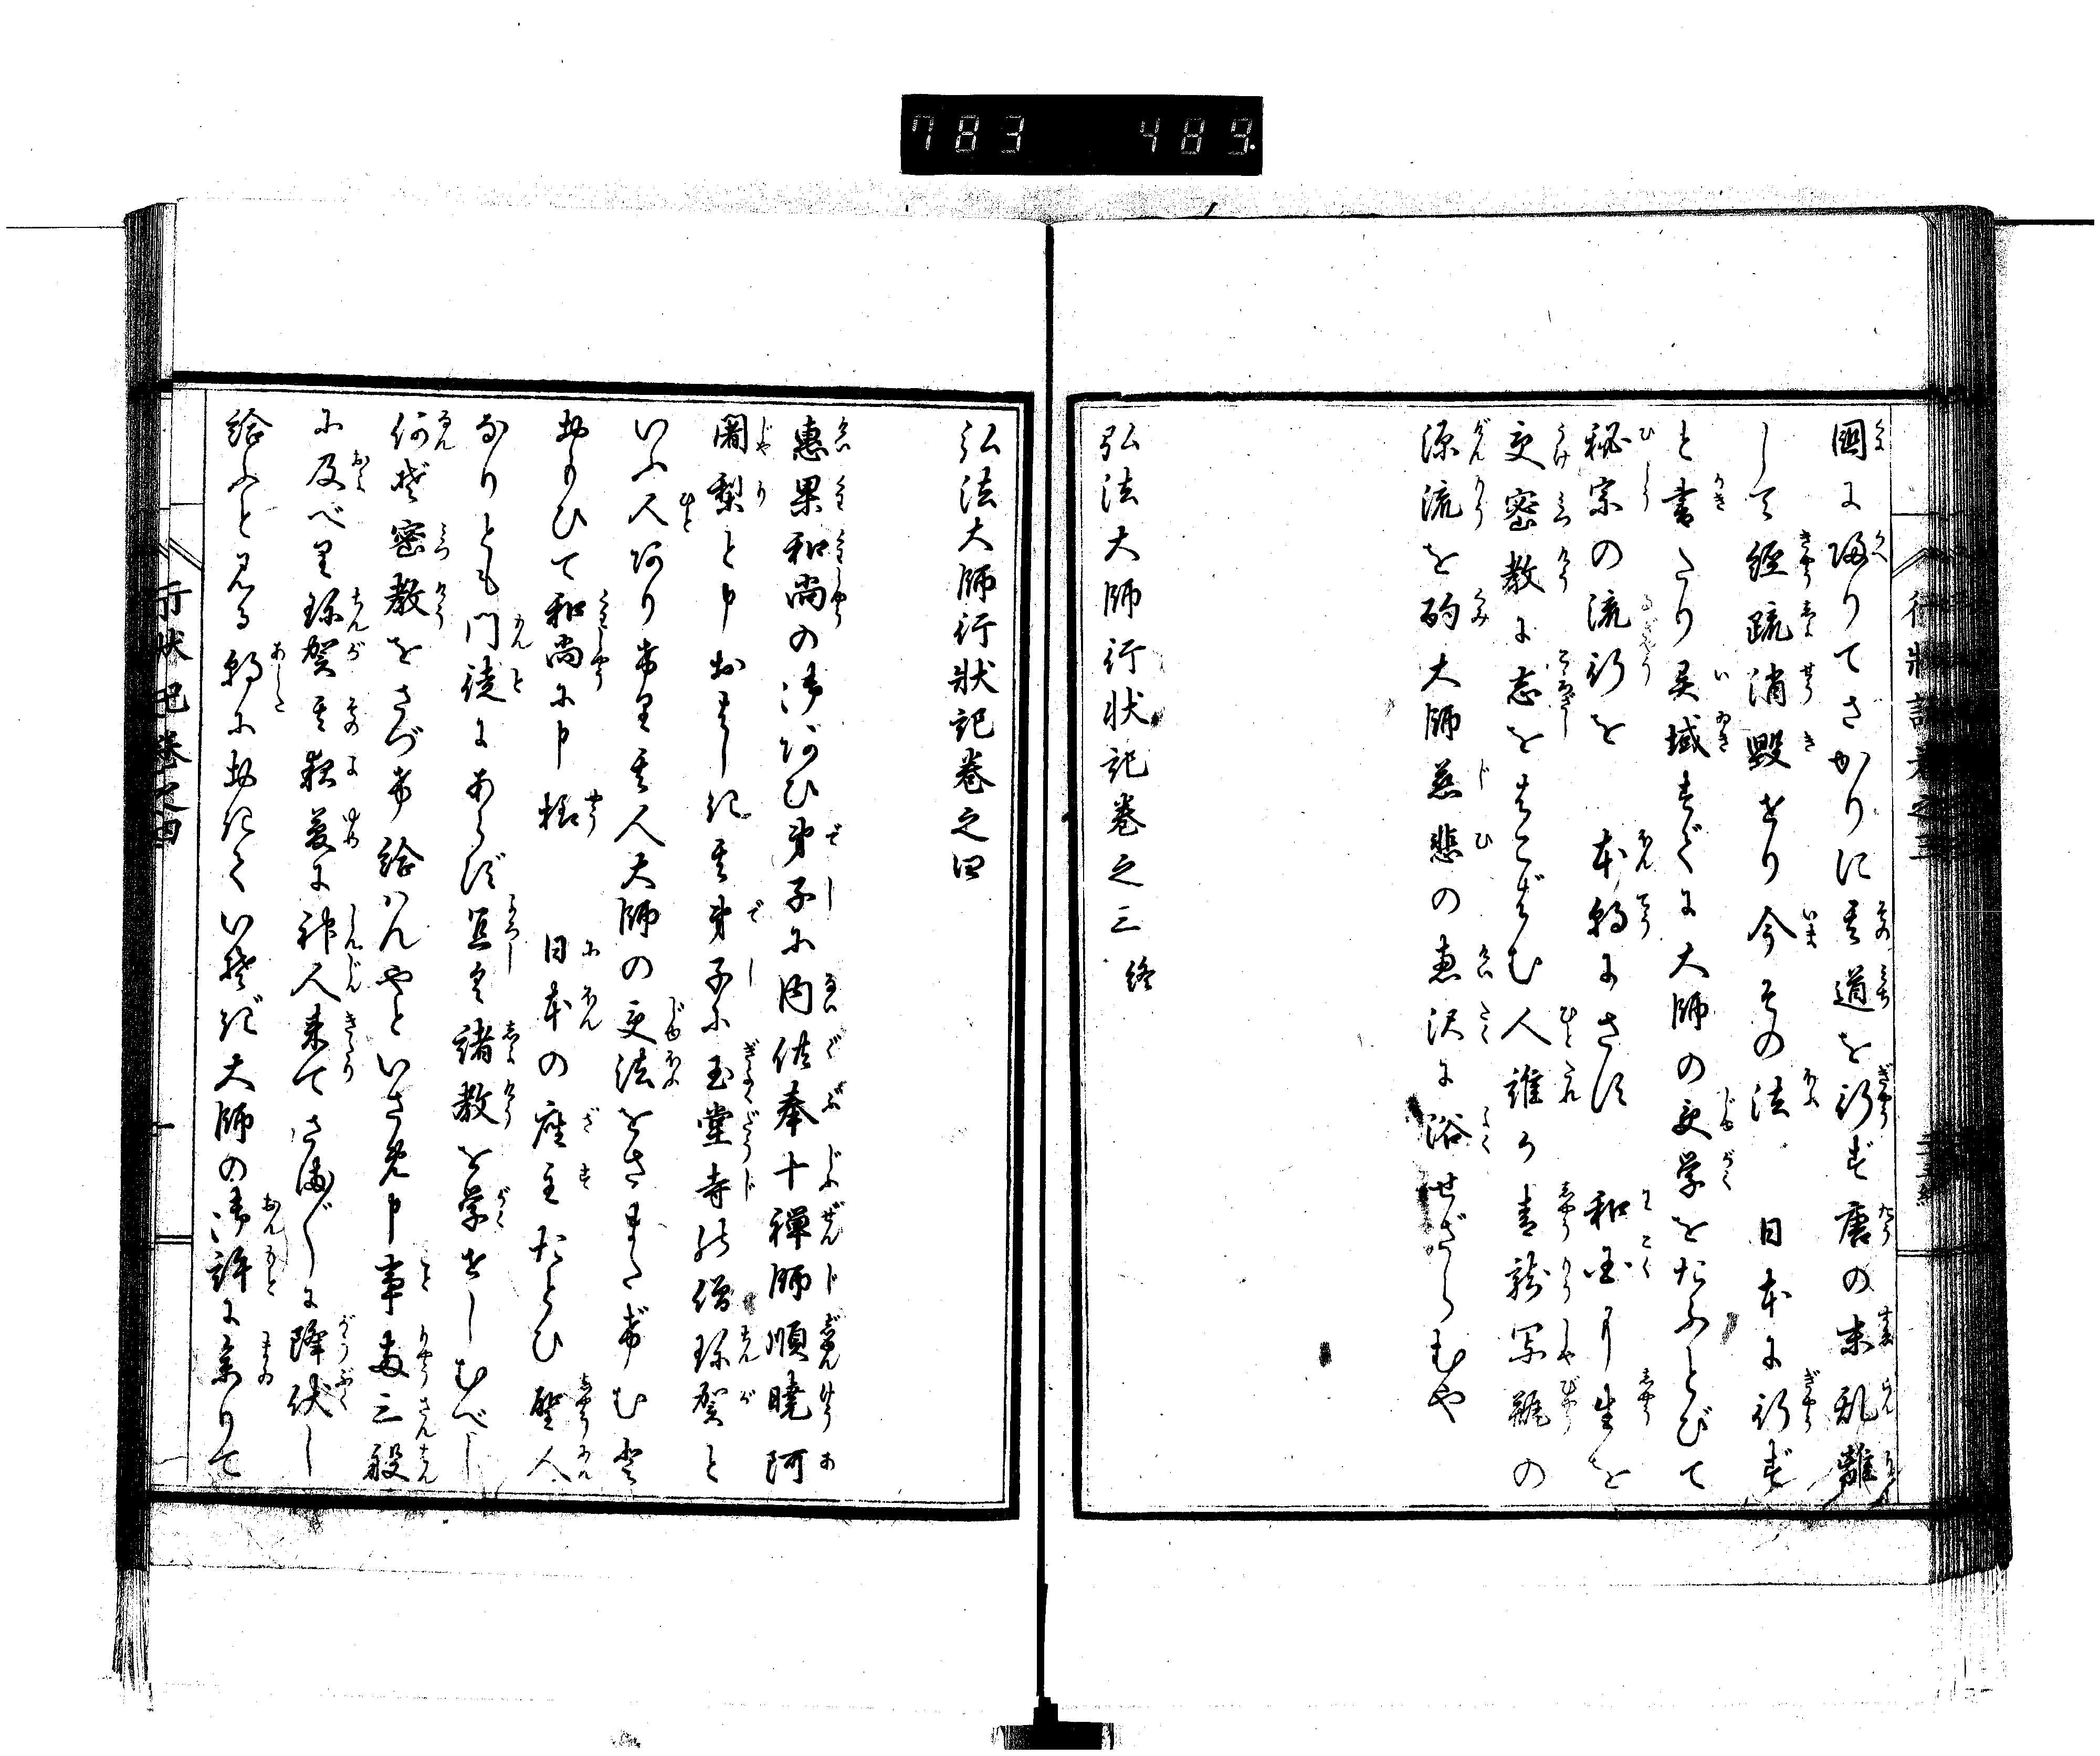 783 489
國に歸りてさかりに其道を行ず唐の末亂離
して經疏消毀せり今その法 日本に行ず
と書たり異域すでに大師の受学をたふとびて
秘宗の流行を 本朝にさす 和国に生を
受密教に志をはこばむ人誰か青龍写瓶の
源流を酌大師慈悲の恵沢に浴せざらむや
弘法大師行状記巻之三終
弘法大師行狀記巻之四
惠果和尚の御相弟子に内供奉十禪師順曉阿
闍梨と申おはしき其弟子に玉堂寺の僧珍賀と
いふ人ありけり其人大師の受法をさまたげむと
おもひて和尚に申様 日本の座主たとひ聖人
なりとも門徒にあらず宜く諸教を学せしむべし
何ぞ密教をさづけ給はんやといさめ申事両三般
に及べり珍賀其夜夢に神人来てさまざまに降伏し
給ふと見る朝におきていそぎ大師の御許に参りて
行状記巻之四